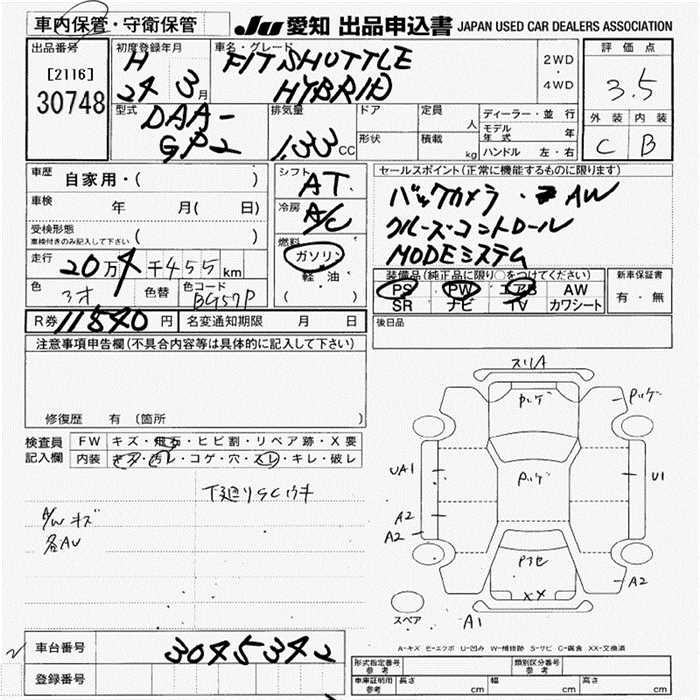 車内保管・守衛保管 JU 愛知 出品申込書 JAPAN USED CAR DEALERS ASSOCIATION
出品番号 初度登録年月 車名・グレード 評価点
[2116] H FIT SHUTTLE 2WD
30748 24 3月 HYBRID ・4WD 3.5
型式 排気量 ドア 定員 ディーラー・並行 外装 内装
DAA- 人 モデル年式 年 C B
GP2 1.33 CC 形状 積載 kg ハンドル 左・右
車歴 自家用・( ) シフト AT セールスポイント(正常に機能するものに限ります)
車検 年 月( 日) 冷房 A/C バックカメラ・ AW
受検形態 ( ) クルーズコントロール
車検付きのみ記入して下さい
燃料 ガソリン MODEシステム
走行 20万4千455km 軽・油 装備品(純正品に限り○をつけてください) 新車保証書
色 色替 色コード ( ) PS PW エアB AW 有・無
3オ BG57P SR ナビ TV カワシート
R券 11540円 名変通知期限 月 日 後日品
注意事項申告欄(不具合内容等は具体的に記入して下さい)
修復歴 有 (箇所 )
検査員 FW キズ・飛石・ヒビ割・リペア跡・X要
記入欄 内装 キズ・汚レ・コゲ・穴・スレ・キレ・破レ
下廻りSCウキ
A/Wキズ
各AU
スリA
Pハゲ Pハゲ
UA1 Pハゲ U1
A2
A2
Pフセ A2
XX
スペア A1
A-キズ E-エクボ U-凹み W-補修跡 S-サビ C-腐食 XX-交換済
車台番号 3045342 形式指定番号 参考 類別区分番号 参考
登録番号 車庫証明用 参考 長さ cm 幅 cm 高さ cm